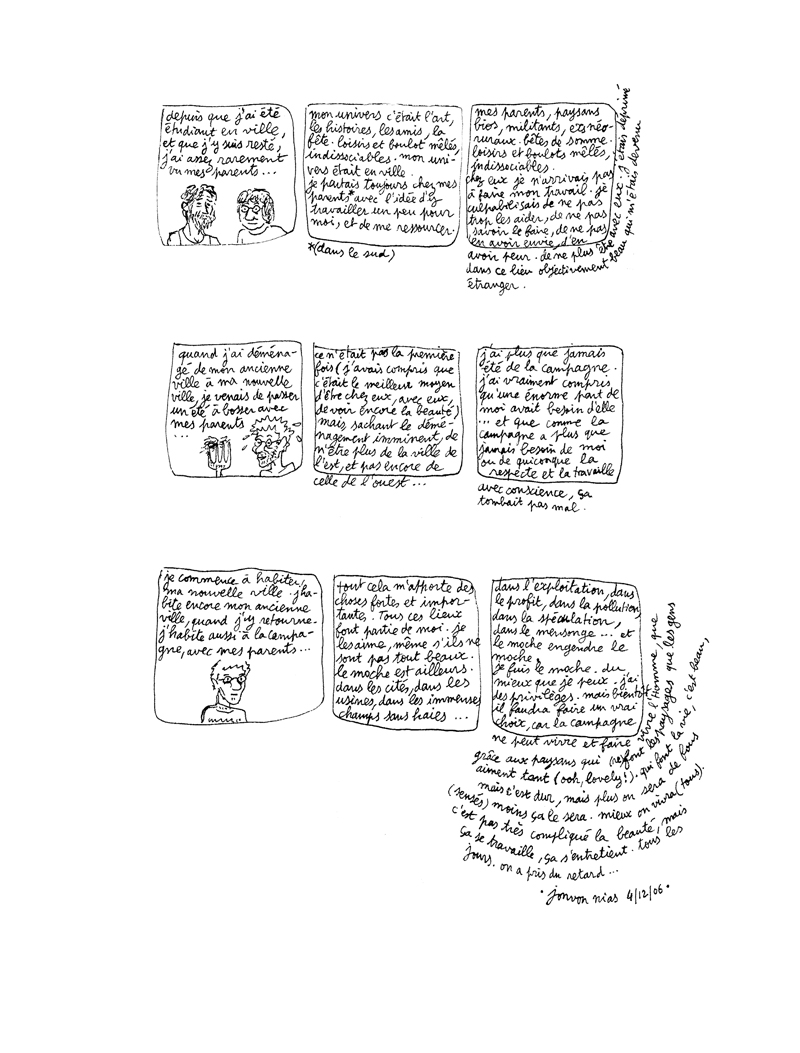 depuis que j'ai été
étudiant en ville,
et que j'y suis resté,
j'ai assez rarement
vu mes parents...
mon univers c'était l'art,
les histoires, les amis, la
fête. loisirs et boulot mêlés,
indissociables. mon uni-
vers était en ville.
je partais toujours chez mes
parents* avec l'idée d'y
travailler un peu pour
moi, et de me ressourcer.
*(dans le sud)
mes parents, paysans
bios, militants, exs néo-
ruraux. bêtes de somme.
loisirs et boulots mêlés,
indissociables.
chez eux je n'arrivais pas
à faire mon travail. je
culpabilisais de ne pas
trop les aider, de ne pas
savoir le faire, de ne pas
en avoir envie, d'en
avoir peur. de ne plus être avec eux. j'étais déprimé
dans ce lieu objectivement beau qui m'était devenu
étranger.
quand j'ai déména-
gé de mon ancienne
ville à ma nouvelle
ville, je venais de passer
un été à bosser avec
mes parents
...
ce n'était pas la première
fois (j'avais compris que
c'était le meilleur moyen
d'être chez eux, avec eux,
de voir encore la beauté)
mais sachant le démé-
nagement imminent, de
n'être plus de la ville de
l'est, et pas encore de
celle de l'ouest...
j'ai plus que jamais
été de la campagne.
j'ai vraiment compris
qu'une énorme part de
moi avait besoin d'elle
... et que comme la
campagne a plus que
jamais besoin de moi
ou de quiconque la
respecte et la travaille
avec conscience, ça
tombait pas mal.
je commence à habiter,
ma nouvelle ville. j'ha-
bite encore mon ancienne
ville, quand j'y retourne.
j'habite aussi à la campa-
gne, avec mes parents...
tout cela m'apporte des
choses fortes et impor-
tantes. Tous ces lieux
font partie de moi. je
les aime, même s'ils ne
sont pas tout beaux.
le moche est ailleurs.
dans les cités, dans les
usines, dans les immenses
champs sans haies...
dans l'exploitation, dans
le profit, dans la pollution,
dans la spéculation,
dans le mensonge... et
le moche engendre le
moche.
je fuis le moche. du
mieux que je peux. j'ai
des privilèges. mais bientôt
il faudra faire un vrai
choix, car la campagne
ne peut vivre et faire vivre l'Homme, que
grâce aux paysans qui (re)font les paysages que les gens
aiment tant (ooh, lovely!). qui font la vie, c'est beau,
mais c'est dur, mais plus on sera de fous
(sensés) moins ça le sera. mieux on vivra (tous).
c'est pas très compliqué la beauté, mais
ça se travaille, ça s'entretient. tous les
jours. on a pris du retard...
• jonvon nias 4/12/06 •